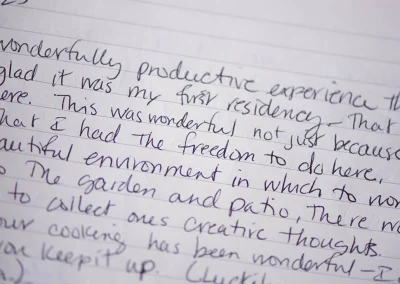 wonderfully productive experience th
glad it was my first residency - That
ere. This was wonderful not just because
hat I had the freedom to do here,
autiful environment in which to wor
The garden and patio, There wa
to collect ones creative thoughts.
our cooking has been wonderful - I
you keep it up. (Luckil